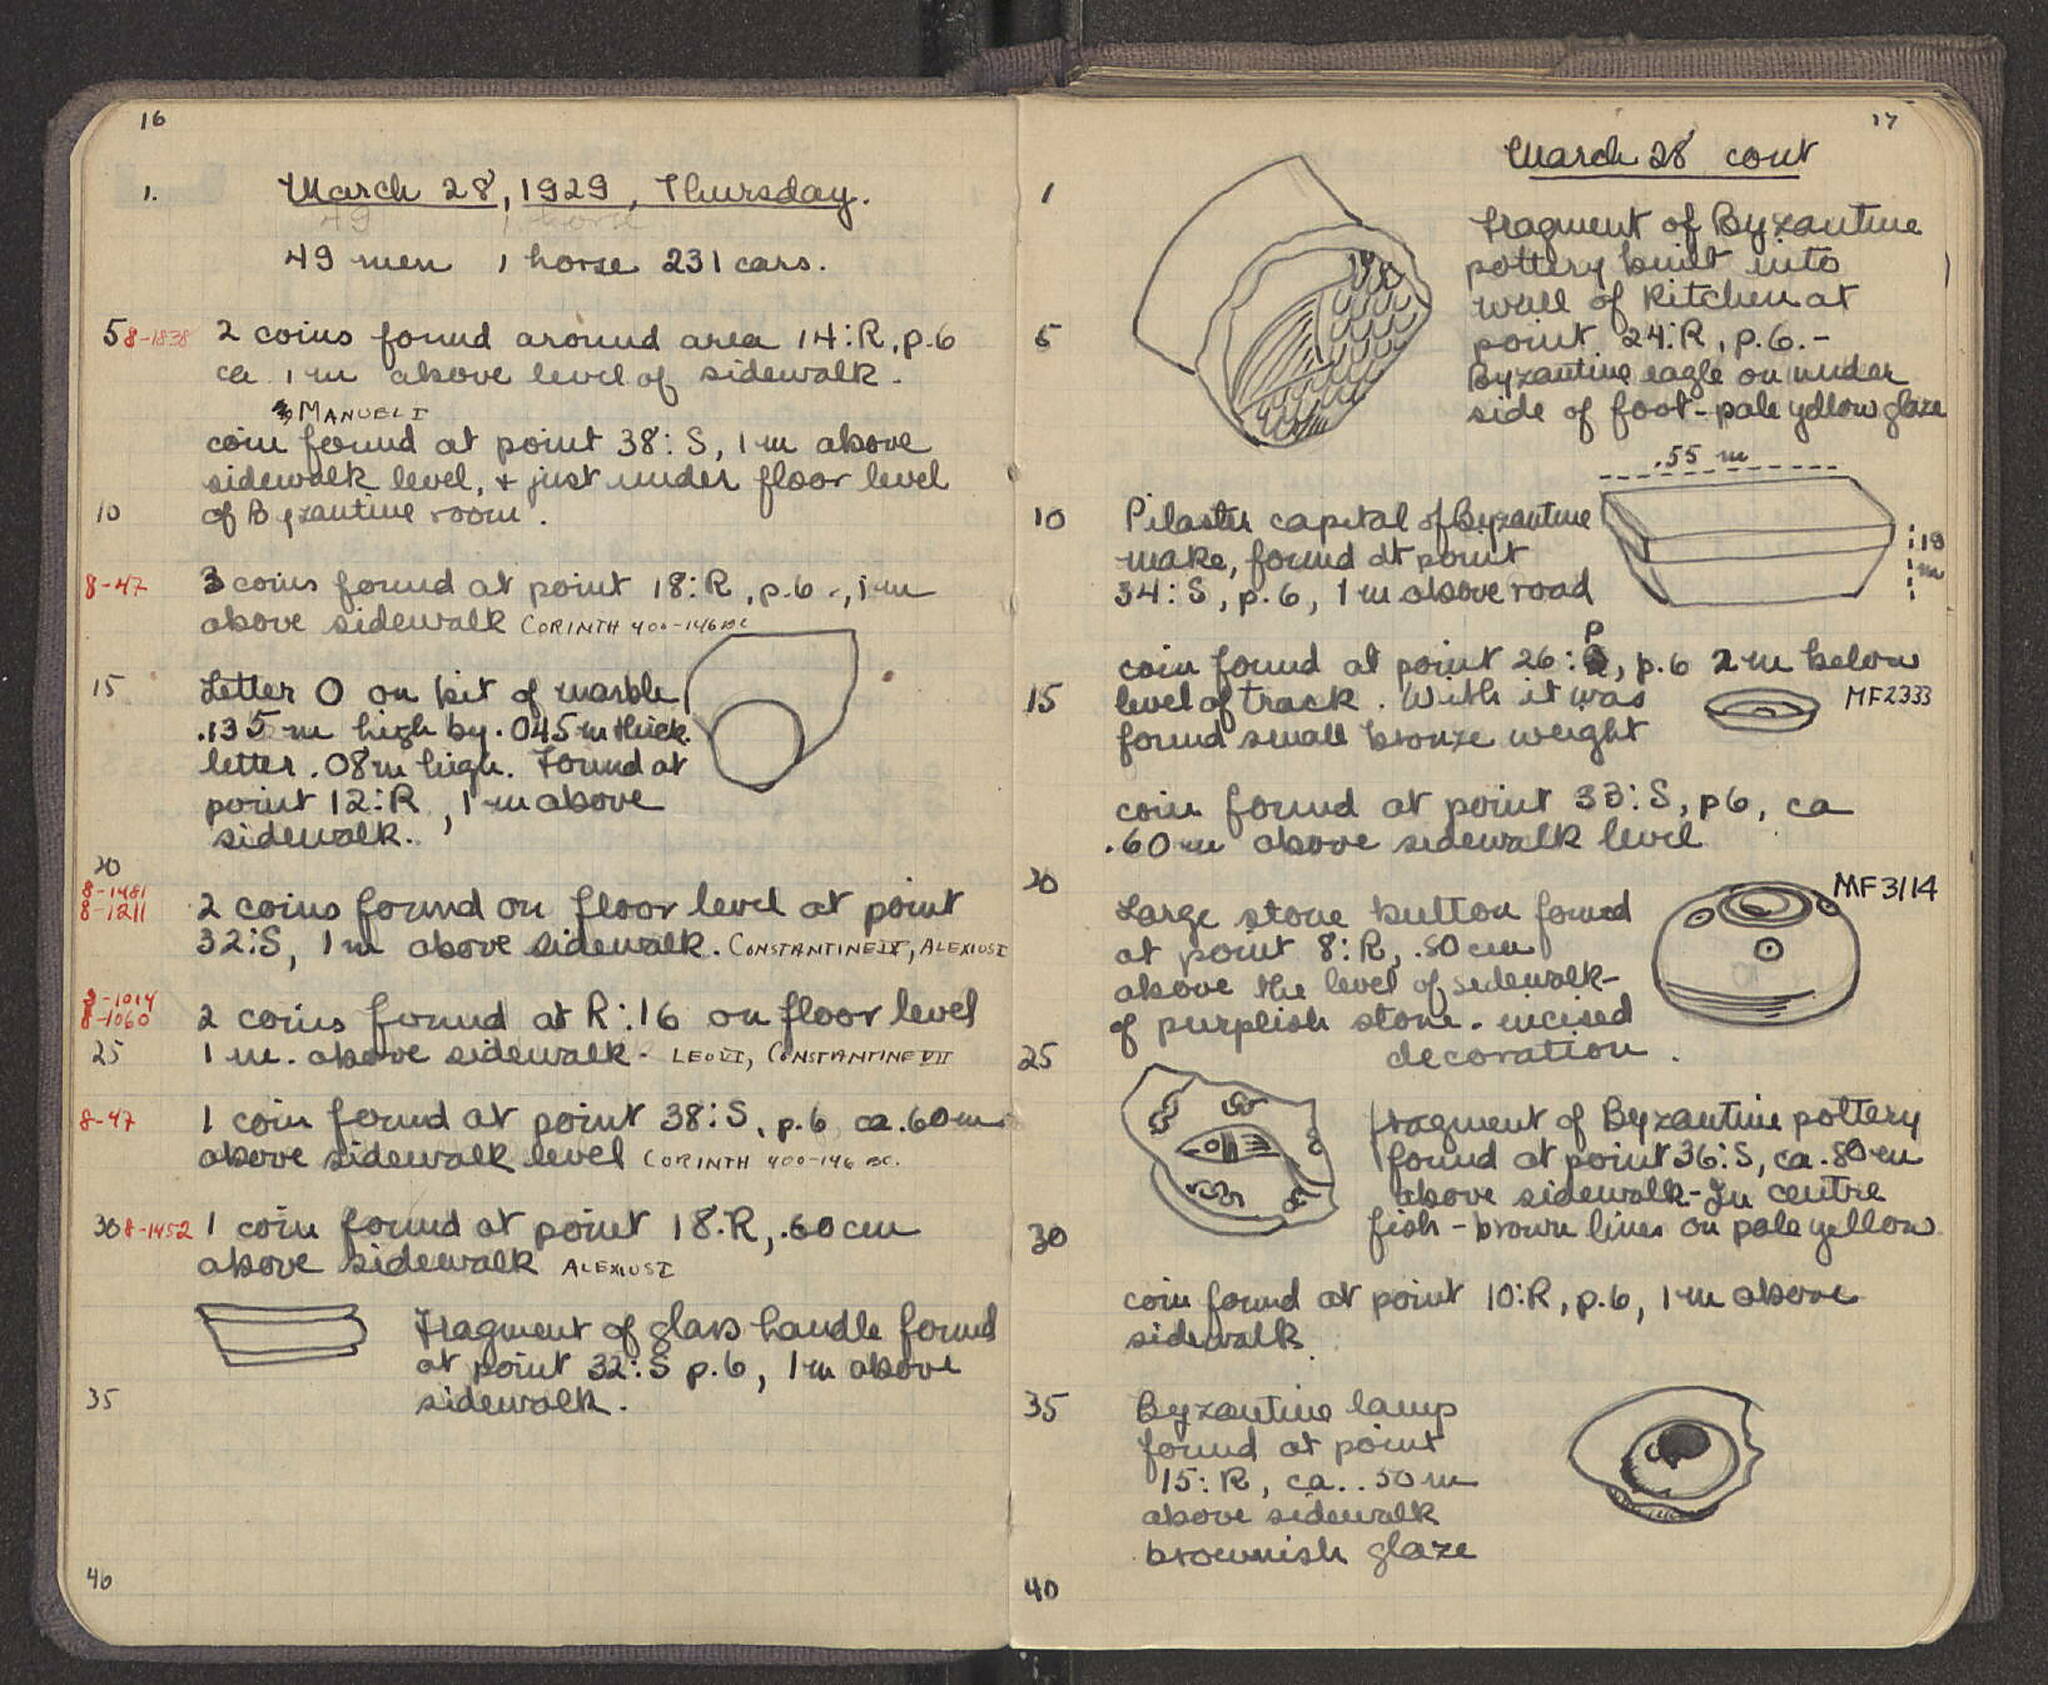 16
1. March 28, 1929, Thursday.
49 men 1 horse 231 cars.
5 8-1838 2 coins found around area 14:R, p.6
ca 1 m above level of sidewalk.
MANUEL I
coin found at point 38:S, 1 m above
sidewalk level, + just under floor level
10 of Byzantine room.
8-47 3 coins found at point 18:R, p.6, 1 m
above sidewalk CORINTH 400-146 BC
15 Letter O on bit of marble
.135 m high by .045 m thick.
letter .08 m high. Found at
point 12:R, 1 m above
sidewalk.
20
8-1481
8-1211 2 coins found on floor level at point
32:S, 1 m above sidewalk. CONSTANTINE IX, ALEXIUS I
8-1014
8-1060 2 coins found at R:16 on floor level
25 1 m. above sidewalk. LEO VI, CONSTANTINE VII
8-47 1 coin found at point 38:S, p.6 ca .60 m
above sidewalk level CORINTH 400-146 BC.
30 8-1452 1 coin found at point 18.R, .60 cm
above sidewalk ALEXIUS I
Fragment of glass handle found
at point 32:S p.6, 1 m above
35 sidewalk.
40
17
March 28 cont
1
Fragment of Byzantine
pottery built into
wall of kitchen at
5 point 24:R, p.6.-
Byzantine eagle on under
side of foot - pale yellow glaze
.55 m
10 Pilaster capital of Byzantine
make, found at point
34:S, p.6, 1 m above road
.19
m
P
coin found at point 26: , p.6 2 m below
15 level of track. With it was MF2333
found small bronze weight
coin found at point 33:S, p6, ca
.60 m above sidewalk level
20 MF3114
Large stone button found
at point 8:R, .50 cm
above the level of sidewalk-
of purplish stone. incised
25 decoration.
fragment of Byzantine pottery
found at point 36:S, ca .80 cm
above sidewalk - In centre
30 fish - brown lines on pale yellow
coin found at point 10:R, p.6, 1 m above
sidewalk.
35 Byzantine lamp
found at point
15:R, ca. .50 m
above sidewalk
brownish glaze
40